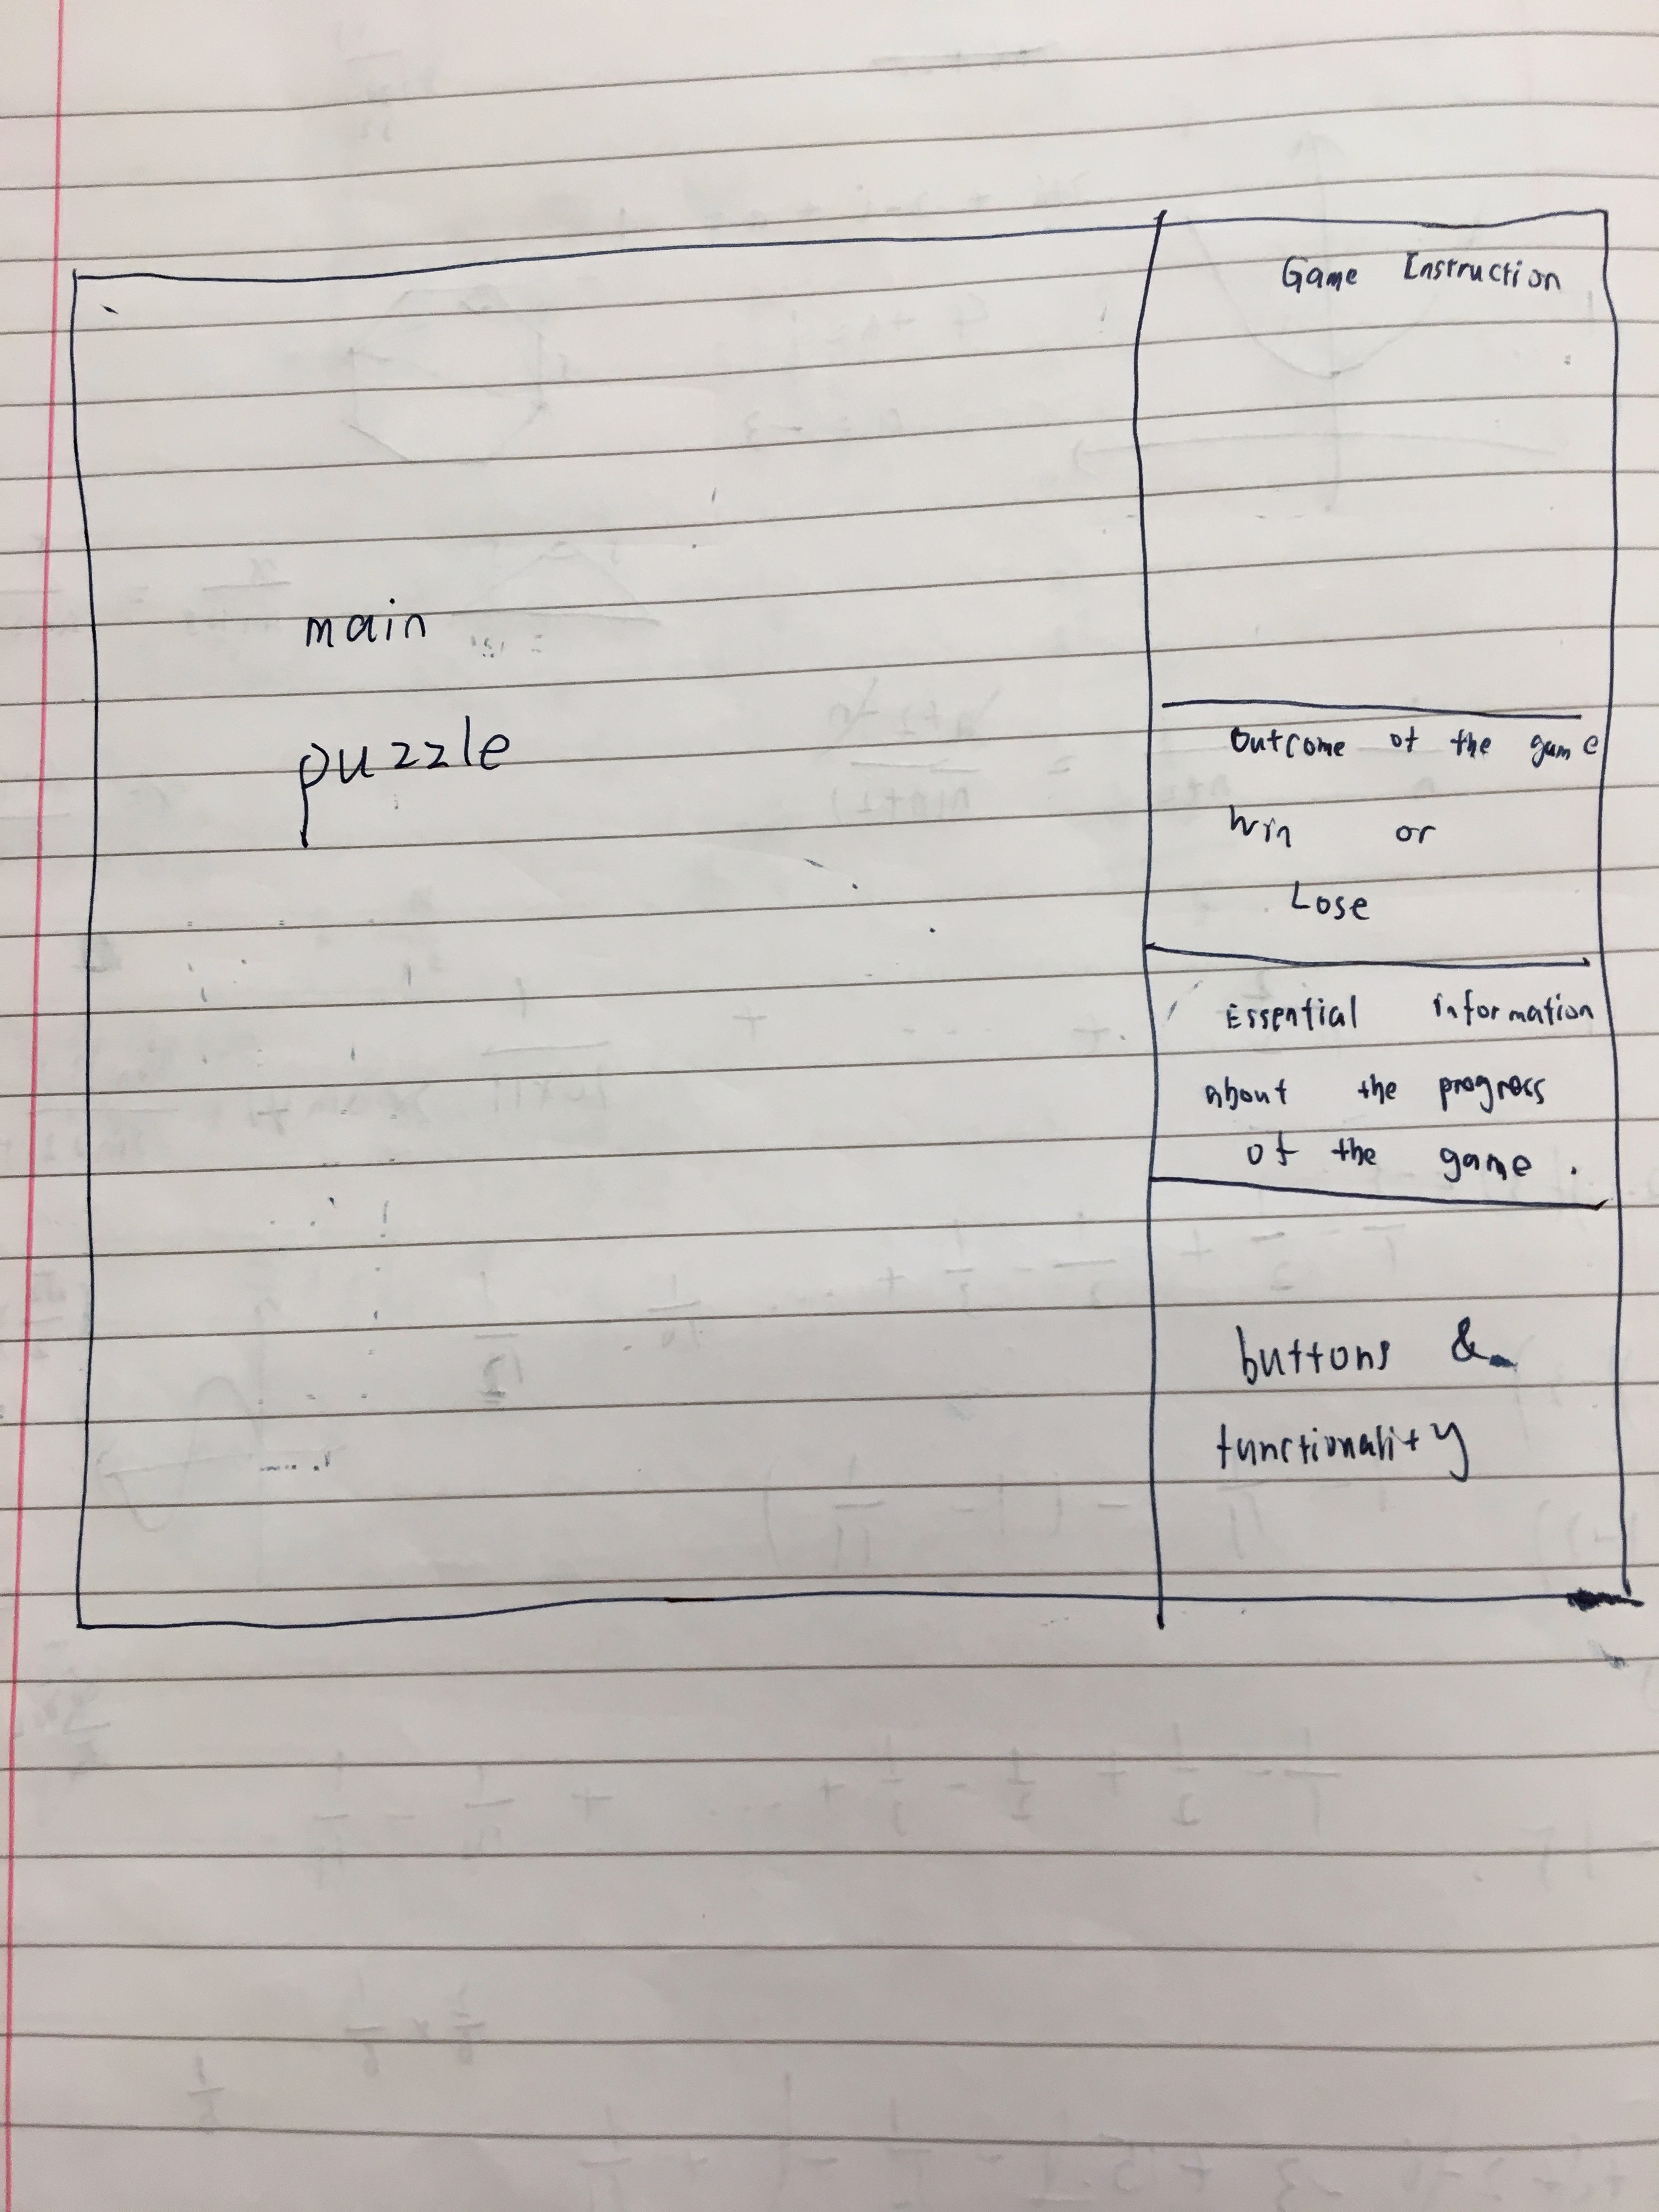 main
puzzle
Game Instruction
Outcome of the game
Win or
Lose
Essential information
about the progress
of the game .
buttons &
functionality